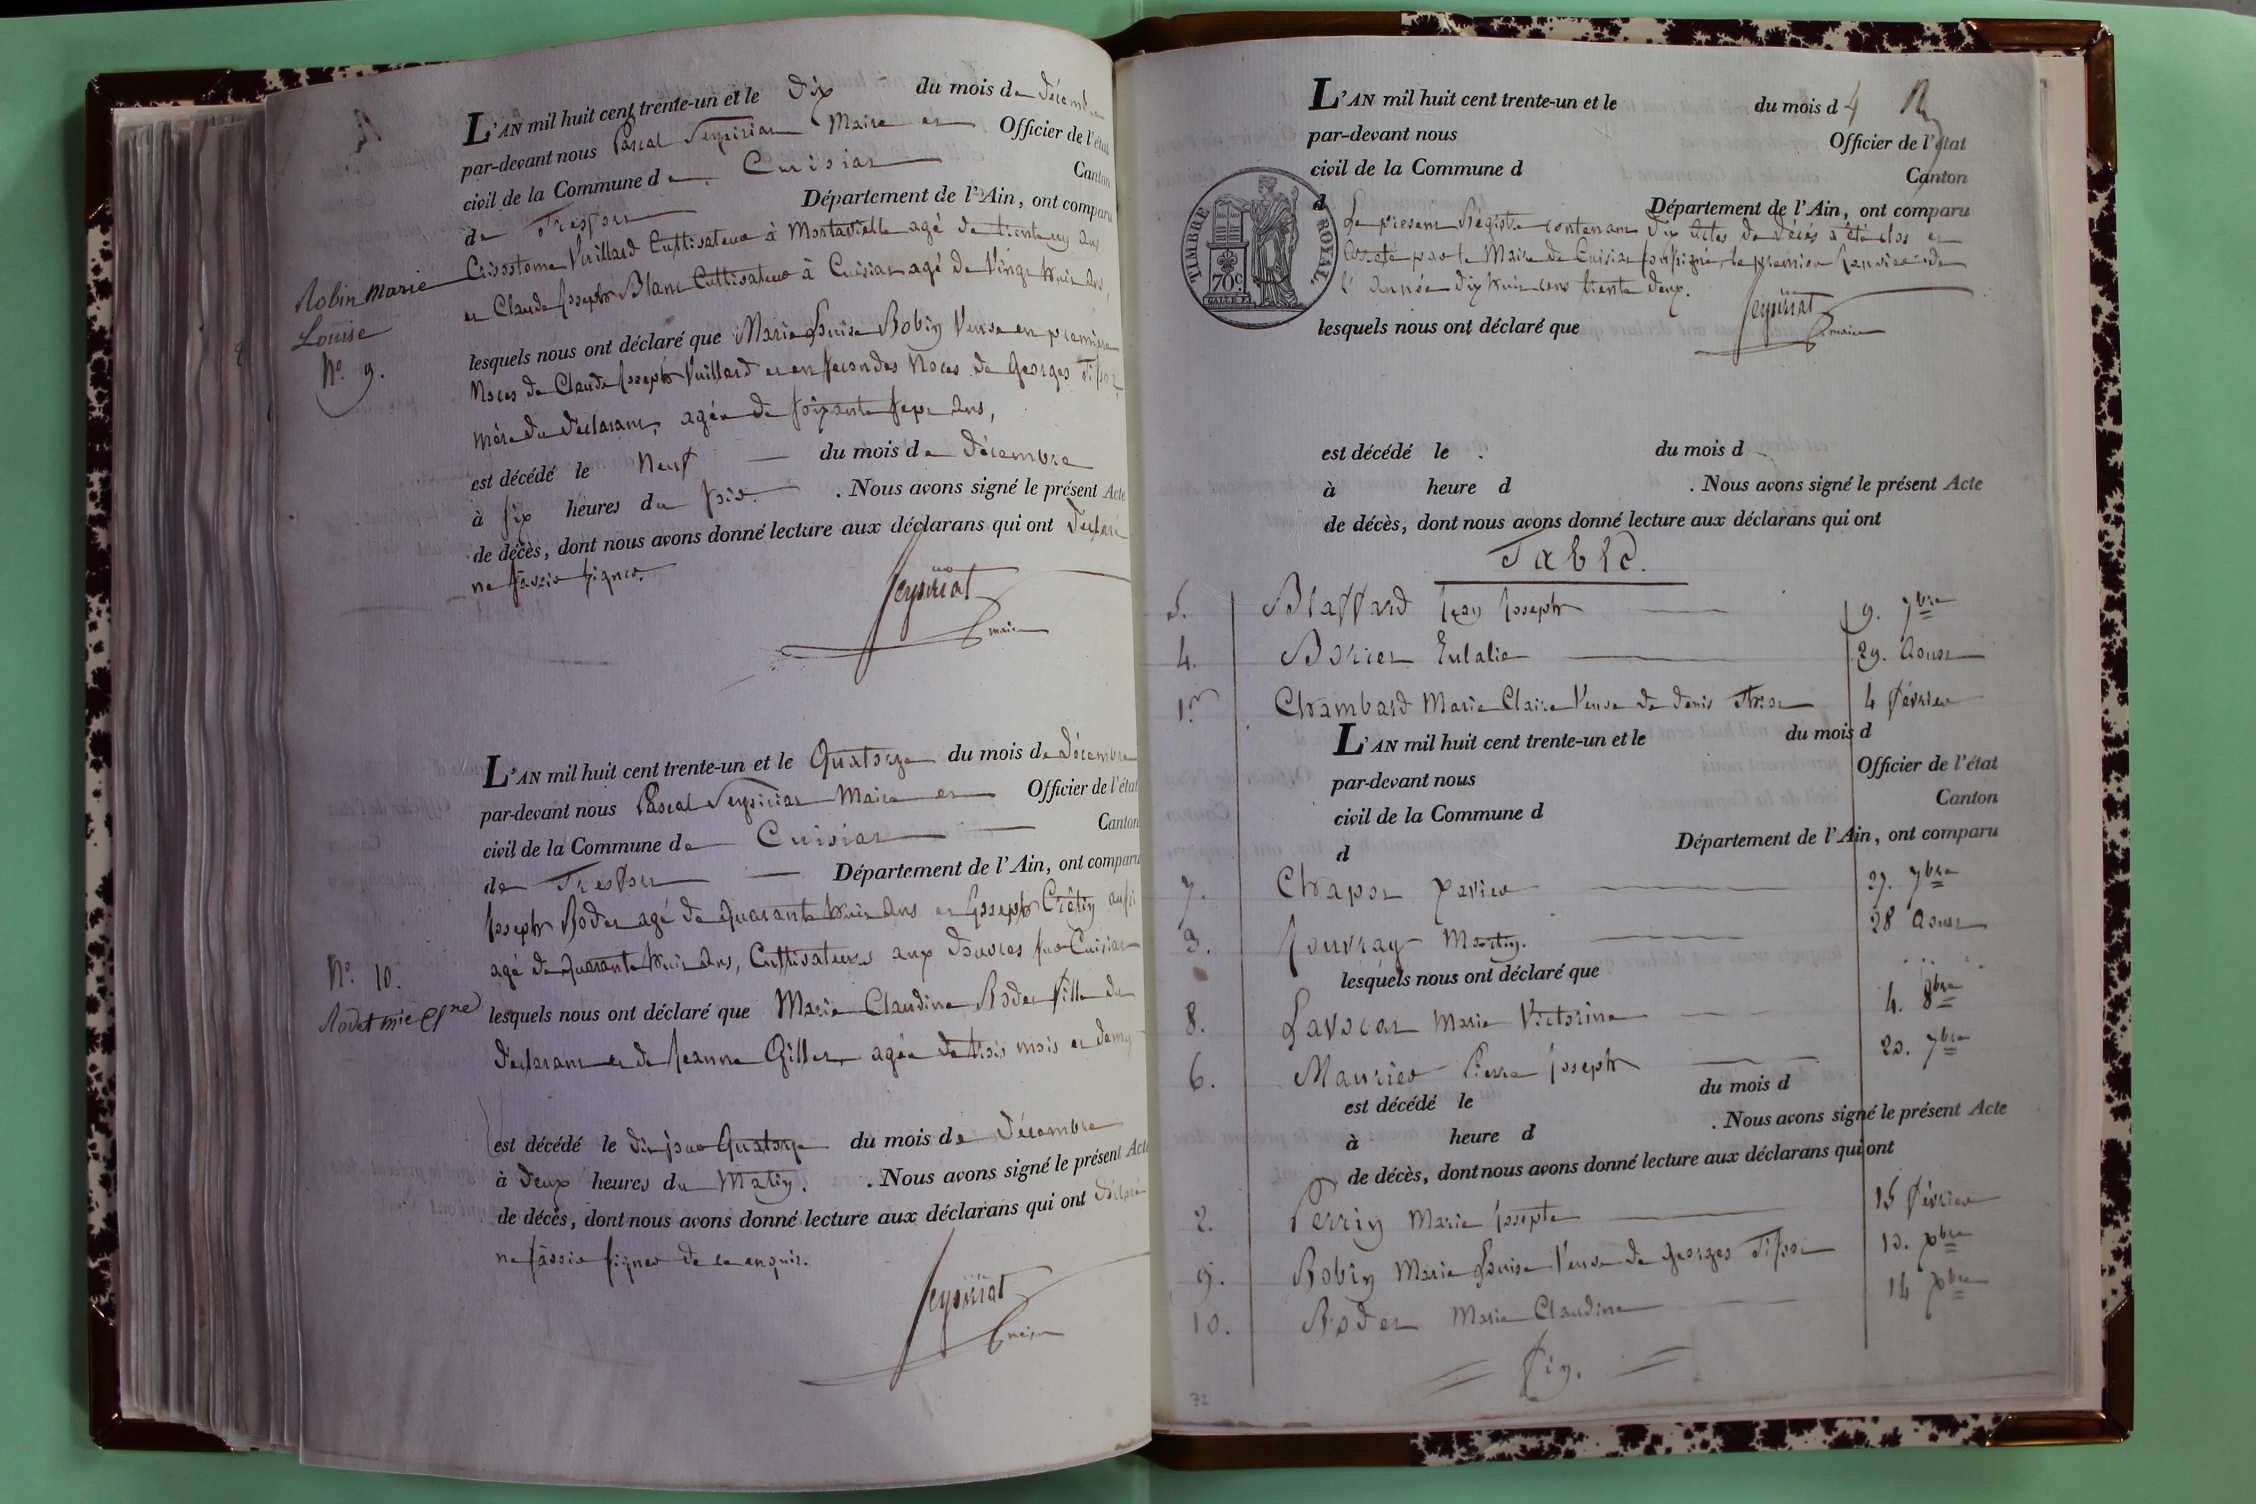 L'AN mil huit cent trente-un et le Dix du mois de Décembre
par-devant nous Pascal Seysiriat Maire et Officier de l'état
civil de la Commune de Cuisiat Canton
de Treffort Département de l'Ain, ont comparu
Crisostome Vuillard Cultivateur à Montadielle agé de trente ans
et Claude Joseph Blanc Cultivateur à Cuisiat agé de Vingt huit ans,
Robin Marie
Louise
N.º 9.
lesquels nous ont déclaré que Marie Louise Robin Veuve en première
Noces de Claude Joseph Vuillard et en secondes Noces de Georges Tissot
mère du déclarant, agée de soixante sept ans,
est décédé le Neuf du mois de Décembre
à six heures du soir. . Nous avons signé le présent Acte
de décès, dont nous avons donné lecture aux déclarans qui ont déclaré
ne savoir signer.
Seysiriat
maire
L'AN mil huit cent trente-un et le Quatorze du mois de Décembre
par-devant nous Pascal Seysiriat Maire et Officier de l'état
civil de la Commune de Cuisiat Canton
de Treffort Département de l'Ain, ont comparu
Joseph Rodet agé de Quarante huit ans et Joseph Crétin aussi
agé de Quarante huit ans, Cultivateurs aux sur Cuisiat
N.º 10.
Rodet mie Cne
lesquels nous ont déclaré que Marie Claudine Rodet fille du
déclarant et de Jeanne Gillet, agée de trois mois et demy
est décédé le dit jour Quatorze du mois de Décembre
à deux heures du Matin. . Nous avons signé le présent Acte
de décès, dont nous avons donné lecture aux déclarans qui ont déclaré
ne savoir signer de ce enquis.
Seysiriat
maire
L'AN mil huit cent trente-un et le du mois d 4
par-devant nous Officier de l'état
civil de la Commune d Canton
d Département de l'Ain, ont comparu
TIMBRE ROYAL
70 c.
Le présent Registre contenant Dix Actes de Décès a été clos et
arrêté par le Maire de Cuisiat soussigné, le premier Janvier de
l'année dix huit cent trente deux.
Seysiriat
maire
lesquels nous ont déclaré que
est décédé le du mois d
à heure d . Nous avons signé le présent Acte
de décès, dont nous avons donné lecture aux déclarans qui ont
Table.
5. Blaffard Jean Joseph 9. 7bre
4. Borret Eulalie 29. Aoust
1.er Chambard Marie Claire Veuve de Denis 4 février
L'AN mil huit cent trente-un et le du mois d
par-devant nous Officier de l'état
civil de la Commune d Canton
d Département de l'Ain, ont comparu
7. Chapot Xavier 27. 7bre
3. Jouvray Martin. 28 Aoust
lesquels nous ont déclaré que
8. Lavocat Marie Victorine 4. 8bre
6. Maurier Pierre Joseph 20. 7bre
est décédé le du mois d
à heure d . Nous avons signé le présent Acte
de décès, dont nous avons donné lecture aux déclarans qui ont
2. Perrin Marie Josepte 15 février
9. Robin Marie Louise Veuve de Georges Tissot 10. xbre
10. Rodet Marie Claudine 14 xbre
fin.
72